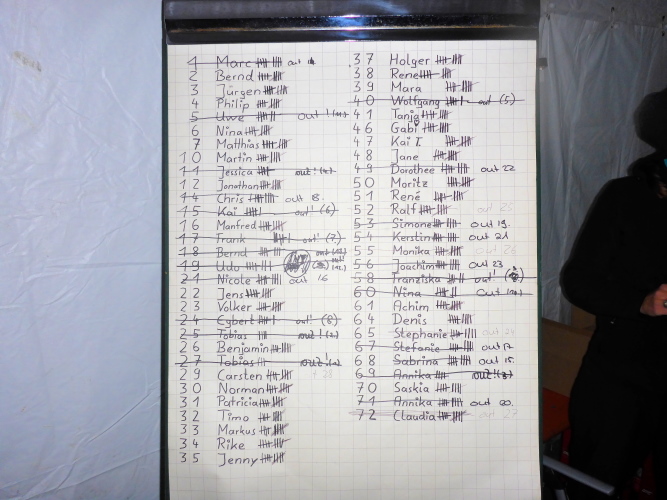 1 Marc out
2 Bernd
3 Jürgen
4 Philip
5 Uwe out!
6 Nina
7 Matthias
10 Martin
11 Jessica out!
12 Jonathan
14 Chris out 8.
15 Kai out! (6)
16 Manfred
17 Frank out! (7.)
18 Bernd
19 Udo
21 Nicole out 16
22 Jens
23 Volker
24 Cybert out! (8)
25 Tobias out!
26 Benjamin
27 Tobias out!
29 Carsten
30 Norman
31 Patricia
32 Timo
33 Markus
34 Rike
35 Jenny
37 Holger
38 Rene
39 Mara
40 Wolfgang out (5)
41 Tanja
46 Gabi
47 Kai T.
48 Jane
49 Dorothee out 22
50 Moritz
51 René
52 Ralf out 25
53 Simone out 19.
54 Kerstin out 21
55 Monika out 26
56 Joachim out 23
58 Franziska out!
60 Nina out
61 Achim
64 Denis
65 Stephanie out 24
67 Stefanie out 17.
68 Sabrina out 15.
69 Annika out!
70 Saskia
71 Annika out 20.
72 Claudia out 27